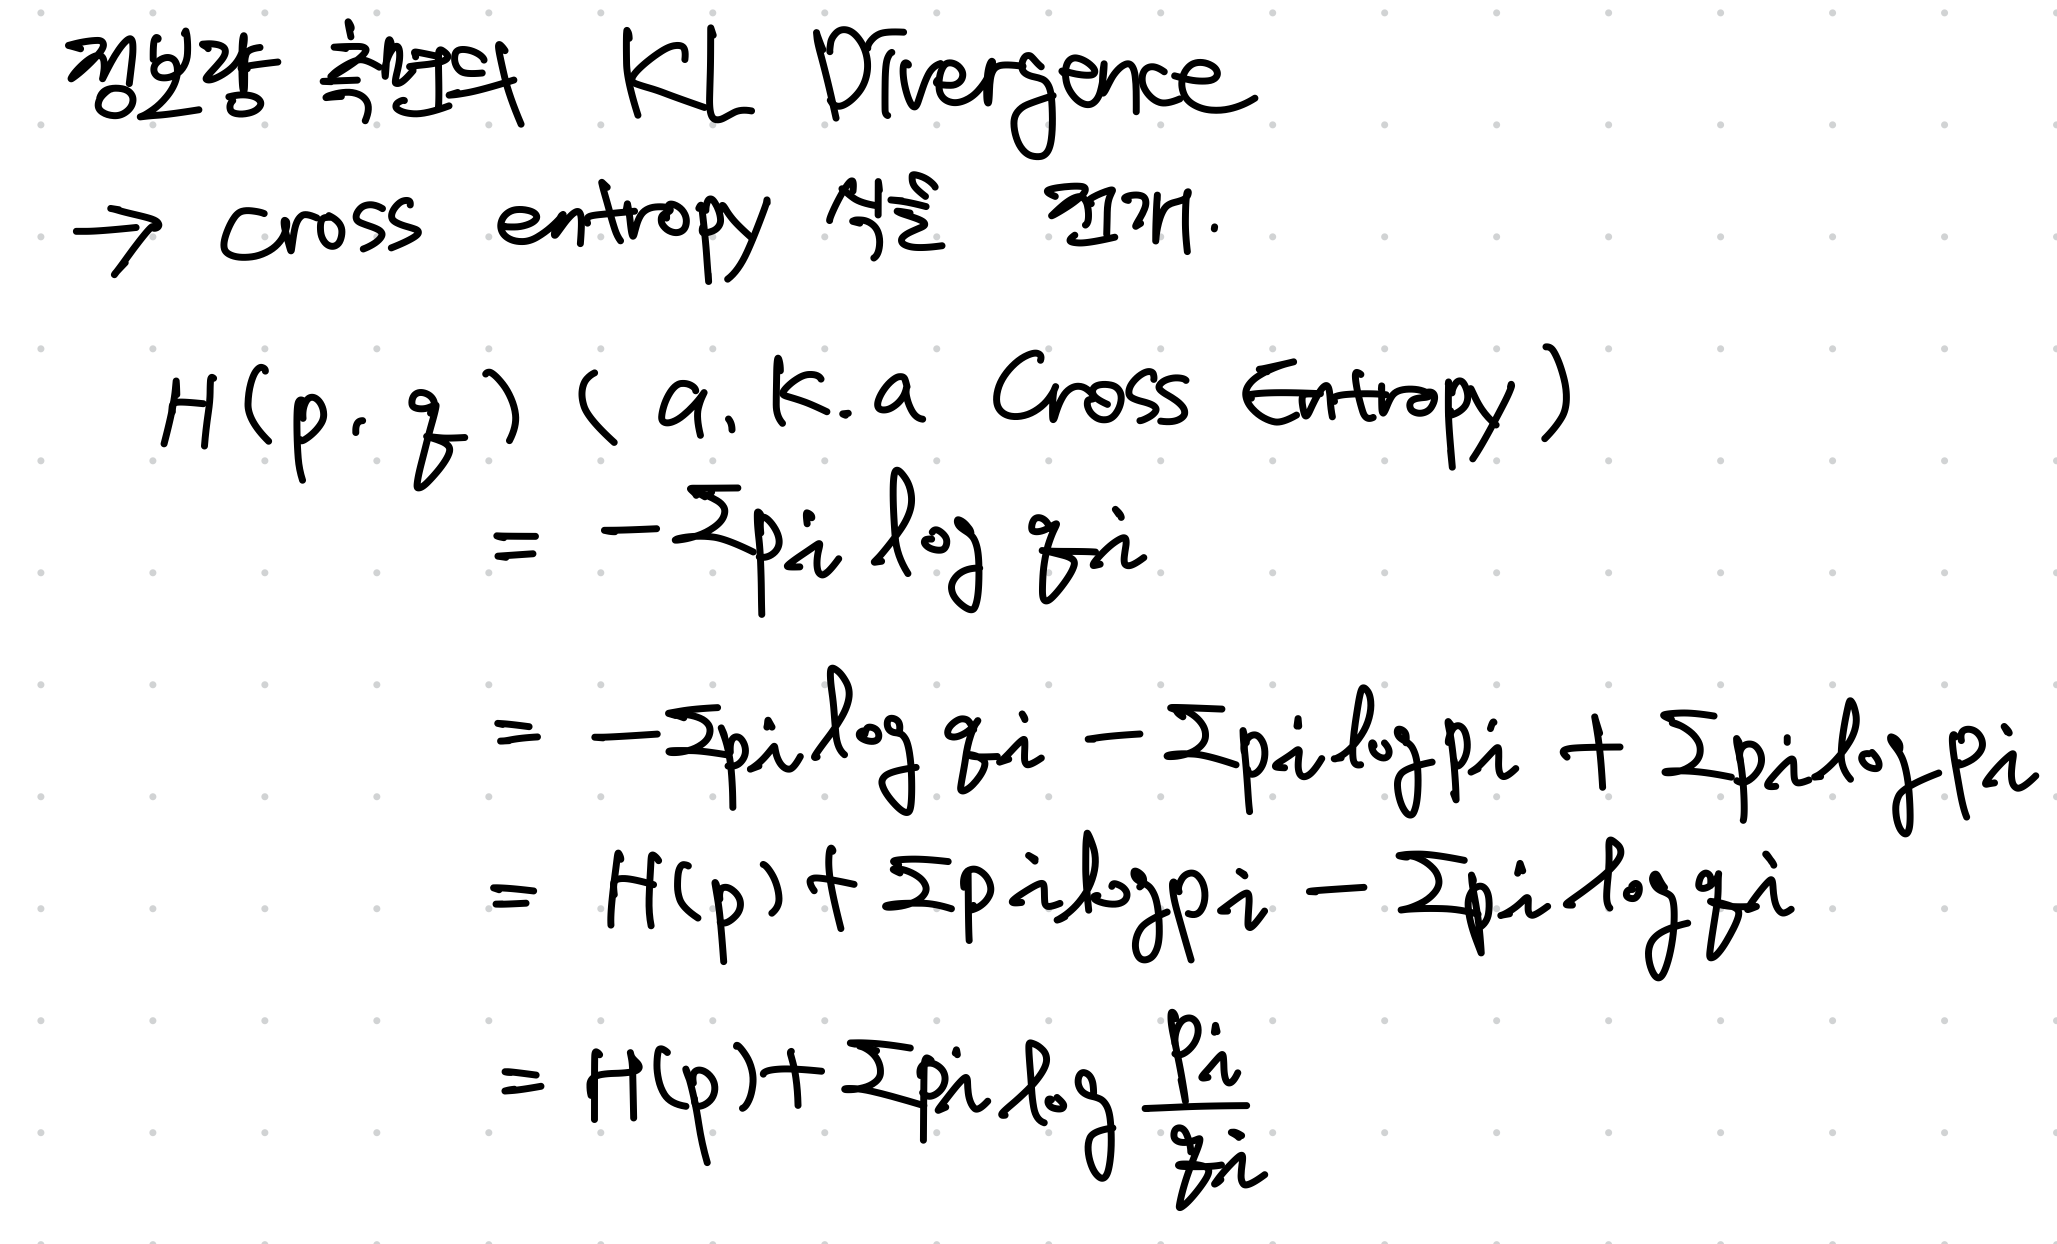 정보량 측면의 KL Divergence
→ cross entropy 식을 전개.
H(p, q) (a.k.a Cross Entropy)
= -Σpi log qi
= -Σpi log qi - Σpi log pi + Σpi log pi
= H(p) + Σpi log pi - Σpi log qi
= H(p) + Σpi log pi/qi